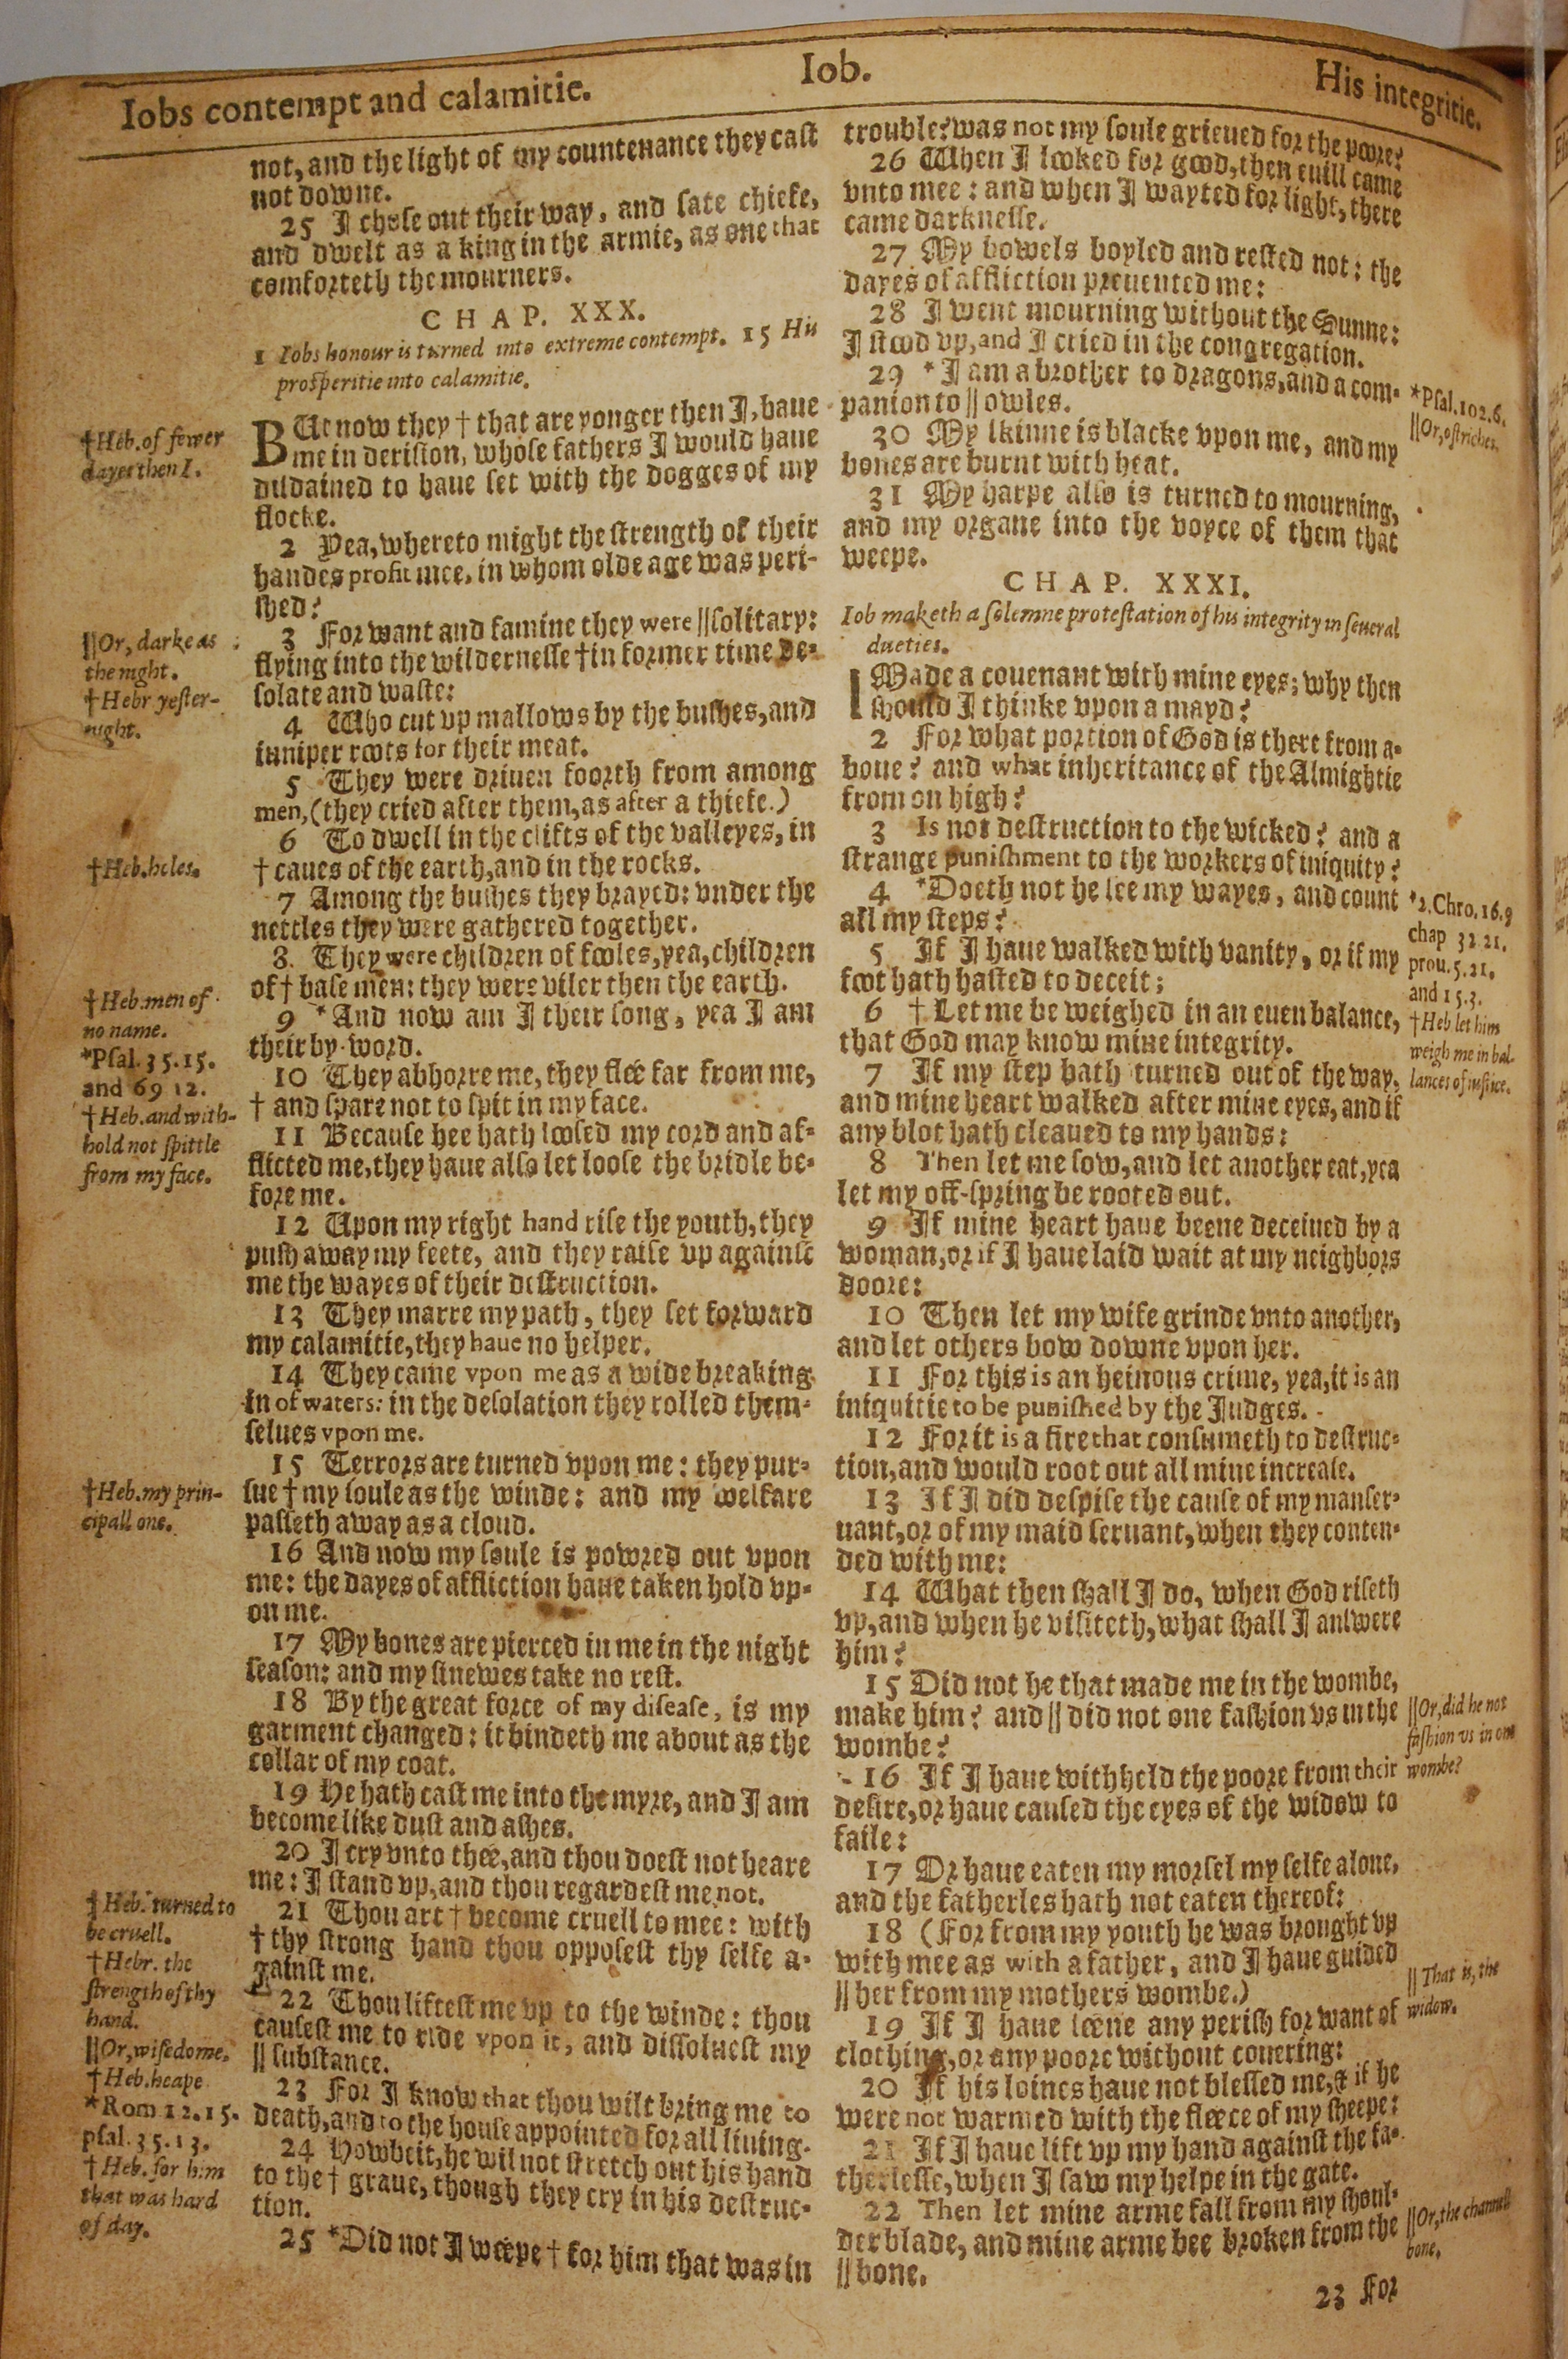 Iobs contempt and calamitie.
Iob.
His integritie.
not, and the light of my countenance they cast
not downe.
25 I chose out their way, and sate chiefe,
and dwelt as a king in the armie, as one that
comforteth the mourners.
CHAP. XXX.
1 Iobs honour is turned into extreme contempt. 15 His
prosperitie into calamitie.
BUt now they † that are yonger then I, haue
me in derision, whose fathers I would haue
disdained to haue set with the dogges of my
flocke.
2 Yea, whereto might the strength of their
handes profit mee, in whom olde age was peri-
shed?
3 For want and famine they were ||solitary:
flying into the wildernesse †in former time de-
solate and waste:
4 Who cut vp mallows by the bushes, and
iuniper roots for their meat.
5 They were driuen foorth from among
men, (they cried after them, as after a thiefe.)
6 To dwell in the clifts of the valleyes, in
† caues of the earth, and in the rocks.
7 Among the bushes they brayed: vnder the
nettles they were gathered together.
8. They were children of fooles, yea, children
of † base men: they were viler then the earth.
9 *And now am I their song, yea I am
their by-word.
10 They abhorre me, they flee far from me,
† and spare not to spit in my face.
11 Because hee hath loosed my cord and af-
flicted me, they haue also let loose the bridle be-
fore me.
12 Upon my right hand rise the youth, they
push away my feete, and they raise vp against
me the wayes of their destruction.
13 They marre my path, they set forward
my calamitie, they haue no helper.
14 They came vpon me as a wide breaking
in of waters: in the desolation they rolled them-
selues vpon me.
15 Terrors are turned vpon me: they pur-
sue † my soule as the winde: and my welfare
passeth away as a cloud.
16 And now my soule is powred out vpon
me: the dayes of affliction haue taken hold vp-
on me.
17 My bones are pierced in me in the night
season: and my sinewes take no rest.
18 By the great force of my disease, is my
garment changed: it bindeth me about as the
collar of my coat.
19 He hath cast me into the myre, and I am
become like dust and ashes.
20 I cry vnto thee, and thou doest not heare
me: I stand vp, and thou regardest me not.
21 Thou art † become cruell to mee: with
† thy strong hand thou opposest thy selfe a-
gainst me.
22 Thou liftest me vp to the winde: thou
causest me to ride vpon it, and dissoluest my
|| substance.
23 For I know that thou wilt bring me to
death, and to the house appointed for all liuing.
24 Howbeit, he wil not stretch out his hand
to the † graue, though they cry in his destruc-
tion.
25 *Did not I weepe † for him that was in
†Heb. of fewer
dayes then I.
||Or, darke as
the night.
†Hebr yester-
night.
†Heb. holes.
†Heb. men of
no name.
*Psal. 35.15.
and 69 12.
†Heb. and with-
hold not spittle
from my face.
†Heb. my prin-
cipall one.
†Heb. turned to
be cruell.
†Hebr. the
strength of thy
hand.
||Or, wisedome.
†Heb. heape
*Rom 12.15.
psal. 35.13.
†Heb. for him
that was hard
of day.
trouble? was not my soule grieued for the poore?
26 When I looked for good, then euill came
vnto mee: and when I wayted for light, there
came darknesse.
27 My bowels boyled and rested not: the
dayes of affliction preuented me:
28 I went mourning without the Sunne:
I stood vp, and I cried in the congregation.
29 *I am a brother to dragons, and a com-
panion to || owles.
30 My skinne is blacke vpon me, and my
bones are burnt with heat.
31 My harpe also is turned to mourning,
and my organe into the voyce of them that
weepe.
CHAP. XXXI.
Iob maketh a solemne protestation of his integrity in seueral
dueties.
I Made a couenant with mine eyes; why then
should I thinke vpon a mayd?
2 For what portion of God is there from a-
boue? and what inheritance of the Almightie
from on high?
3 Is not destruction to the wicked? and a
strange punishment to the workers of iniquity?
4 *Doeth not he see my wayes, and count
all my steps?
5 If I haue walked with vanity, or if my
foot hath hasted to deceit;
6 † Let me be weighed in an euen balance,
that God may know mine integrity.
7 If my step hath turned out of the way,
and mine heart walked after mine eyes, and if
any blot hath cleaued to my hands:
8 Then let me sow, and let another eat, yea
let my off-spring be rooted out.
9 If mine heart haue beene deceiued by a
woman, or if I haue laid wait at my neighbors
doore:
10 Then let my wife grinde vnto another,
and let others bow downe vpon her.
11 For this is an heinous crime, yea, it is an
iniquitie to be punished by the Iudges.
12 For it is a fire that consumeth to destruc-
tion, and would root out all mine increase.
13 If I did despise the cause of my manser-
uant, or of my maid seruant, when they conten-
ded with me:
14 What then shall I do, when God riseth
vp, and when he visiteth, what shall I answere
him?
15 Did not he that made me in the wombe,
make him? and || did not one fashion vs in the
wombe?
16 If I haue withheld the poore from their
desire, or haue caused the eyes of the widow to
faile:
17 Or haue eaten my morsel my selfe alone,
and the fatherles hath not eaten thereof:
18 (For from my youth he was brought vp
with mee as with a father, and I haue guided
|| her from my mothers wombe.)
19 If I haue seene any perish for want of
clothing, or any poore without couering:
20 If his loines haue not blessed me, & if he
were not warmed with the fleece of my sheepe:
21 If I haue lift vp my hand against the fa-
therlesse, when I saw my helpe in the gate.
22 Then let mine arme fall from my shoul-
der blade, and mine arme bee broken from the
|| bone.
23 For
*Psal. 102.6.
||Or, ostriches.
*2. Chro. 16.9
chap 32 21.
prou. 5.21.
and 15.3.
†Heb let him
weigh me in bal-
lances of iustice.
||Or, did he not
fashion vs in one
wombe?
|| That is, the
widow.
||Or, the channell
bone.